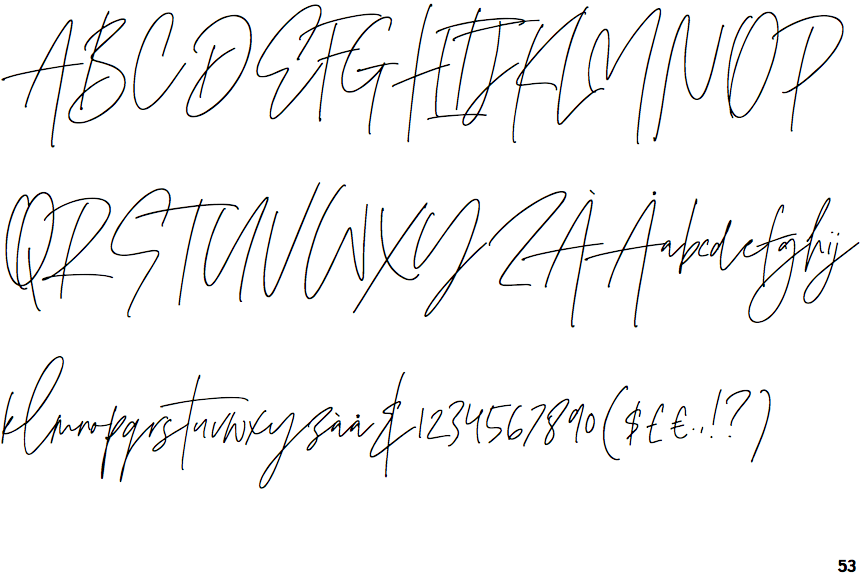 ABCDEFGHIJKLMNOP
QRSTUVWXYZÀÅabcdefghij
klmnopqrstuvwxyzàå&1234567890($£€.,!?)
53